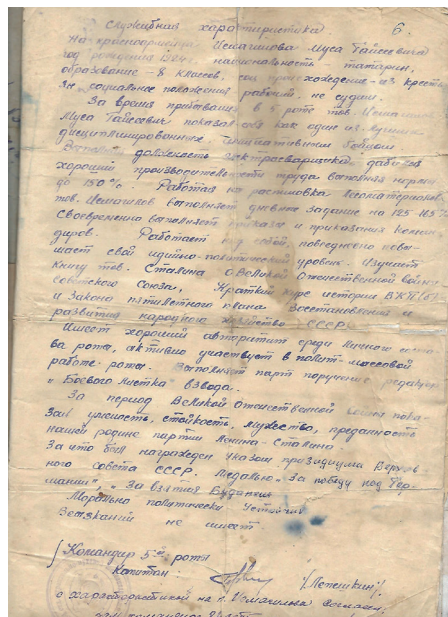 6.
Служебная характеристика
На красноармейца Исмагилова Муса Гайсевича
год рождения национальность - татарин,
образование - 8 классов, соц происхождение - из крестьян
социальное положение рабочий, не судим.
За время пребывания в 5 роте тов. Исмагилов
Муса Гайсевич показал себя как один из лучших
дисциплинированных бойцов
должность электросварщика
хорошей производительности труда выполняя нормы
до 150% Работая на лесоматериалов
тов. Исмагилов выполняет дневные задание на 125-
Своевременно выполняет приказы и приказания команди
диров. Работает над собой, повседневно повы
шает свой идейно-политический уровень. Изучает
Книгу тов. Сталина о Великой Отечественной войне
Советского Союза, Краткий курс истории ВКП(б)
и Закона пятилетнего плана восстановления и
развития народного хозяйство СССР.
Имеет хороший авторитет среди личного соста
ва роты, активно участвует в полит-массовой
работе роты. Выполняет парт поручение редактор
"Боевого листка" взвода.
За период Великой Отечественной войны пока-
зал стойкость, мужество, преданность
нашей родине партии Ленина-Сталина
За что был награжден указом президиума Верхов
ного совета СССР. Медалью "За победу над Гер
манией", "За взятия Будапешт
Морально политически устойчив
Взысканий не имеет.
Командир 5ой роты
Капитан: /Лепешкин/
с характеристикой на т. Исмагилова Согласен,